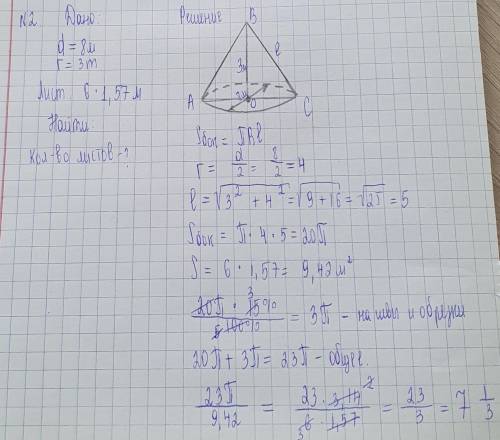 N2 Дано:
d = 8м
r = 3m
Лист 6 · 1,57 м
Найти
Кол-во листов - ?
Решение
B
l
3м
A
O
C
Sбок = πRl
r = d/2 = 8/2 = 4
l = √3² + 4² = √9 + 16 = √25 = 5
Sбок = π · 4 · 5 = 20π
S = 6 · 1,57 = 9,42 м²
20π · 15% / 100% = 3π - на швы и обрезки
20π + 3π = 23π - общее.
23π / 9,42 = 23 · 3,14 / 6 · 1,57 = 23/3 = 7 1/3